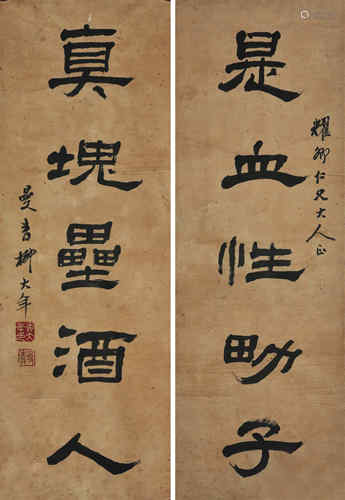 是血性男子
耀卿仁兄大人正
真塊壘酒人
曼青柳大年